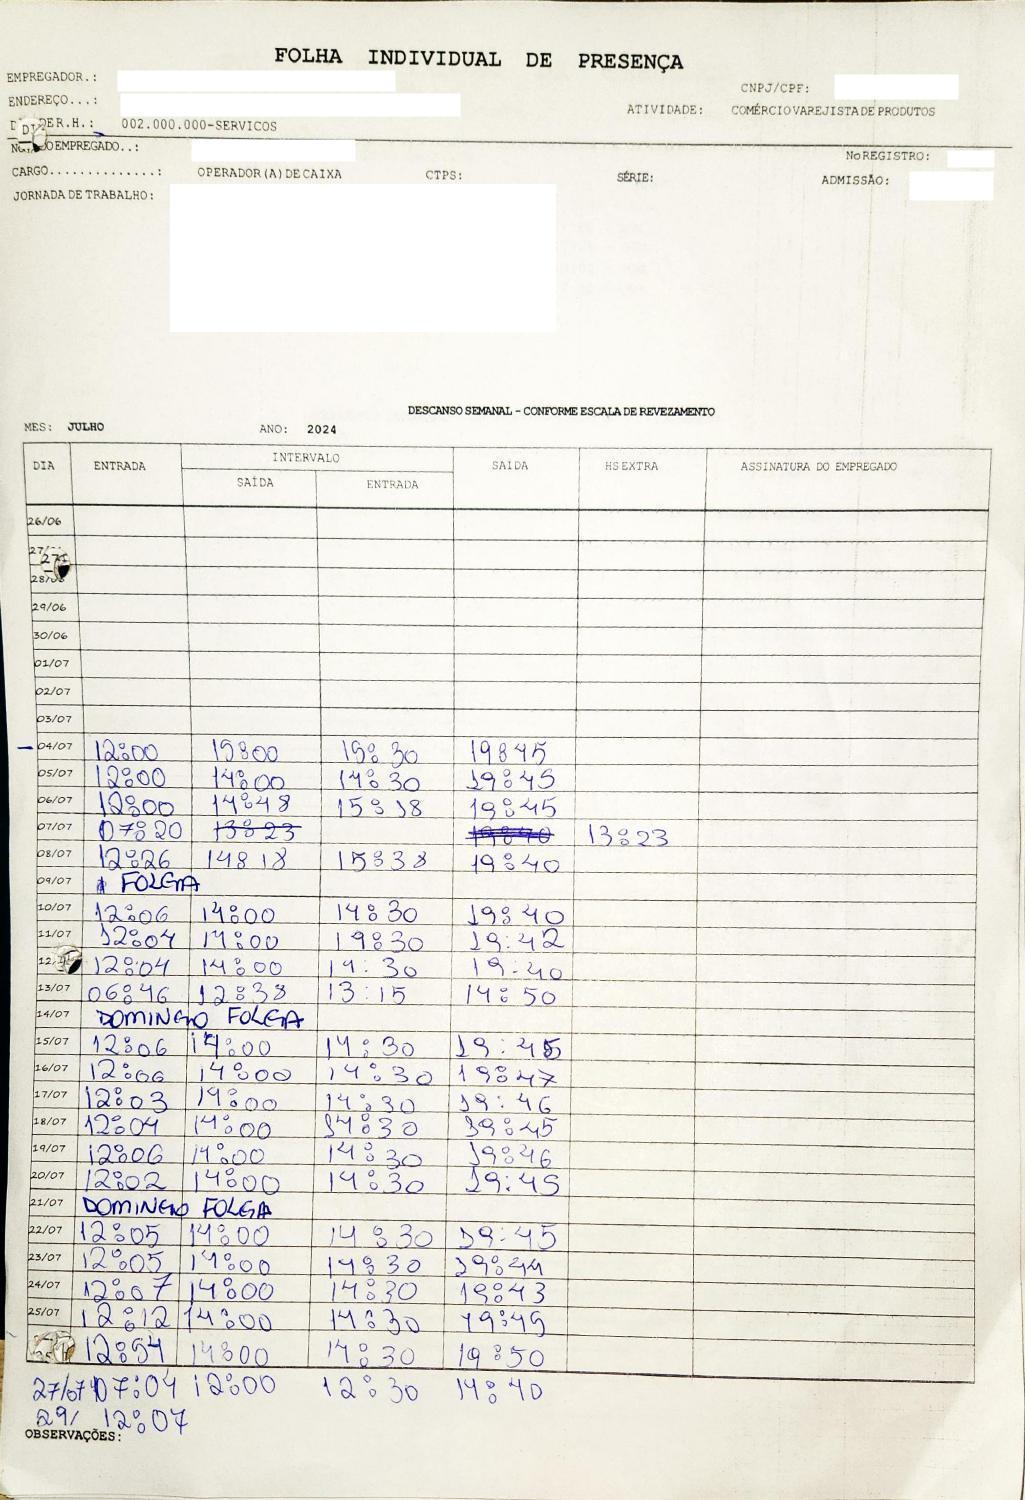 FOLHA INDIVIDUAL DE PRESENÇA
EMPREGADOR.:
CNPJ/CPF:
ENDEREÇO...:
ATIVIDADE: COMÉRCIO VAREJISTA DE PRODUTOS
DER.H.: 002.000.000-SERVICOS
EMPREGADO..:
No REGISTRO:
CARGO..............: OPERADOR(A) DE CAIXA CTPS: SÉRIE: ADMISSÃO:
JORNADA DE TRABALHO:
DESCANSO SEMANAL - CONFORME ESCALA DE REVEZAMENTO
MES: JULHO ANO: 2024
DIA ENTRADA INTERVALO SAÍDA HS EXTRA ASSINATURA DO EMPREGADO
SAÍDA ENTRADA
26/06
27/
28/06
29/06
30/06
01/07
02/07
03/07
04/07 12:00 15:00 15:30 19:45
05/07 12:00 14:00 14:30 19:45
06/07 12:00 14:48 15:18 19:45
07/07 07:20 13:23 19:40 13:23
08/07 12:26 14:18 15:38 19:40
09/07 FOLGA
10/07 12:06 14:00 14:30 19:40
11/07 12:04 14:00 19:30 19:42
12/ 12:04 14:00 14:30 19:40
13/07 06:46 12:38 13:15 14:50
14/07 DOMINGO FOLGA
15/07 12:06 14:00 14:30 19:45
16/07 12:06 14:00 14:30 19:47
17/07 12:03 14:00 14:30 19:46
18/07 12:04 14:00 14:30 19:45
19/07 12:06 14:00 14:30 19:46
20/07 12:02 14:00 14:30 19:45
21/07 DOMINGO FOLGA
22/07 12:05 14:00 14:30 19:45
23/07 12:05 14:00 14:30 19:44
24/07 12:07 14:00 14:30 19:43
25/07 12:12 14:00 14:30 19:45
12:54 14:00 14:30 19:50
27/07 07:04 12:00 12:30 14:40
29/ 12:07
OBSERVAÇÕES: